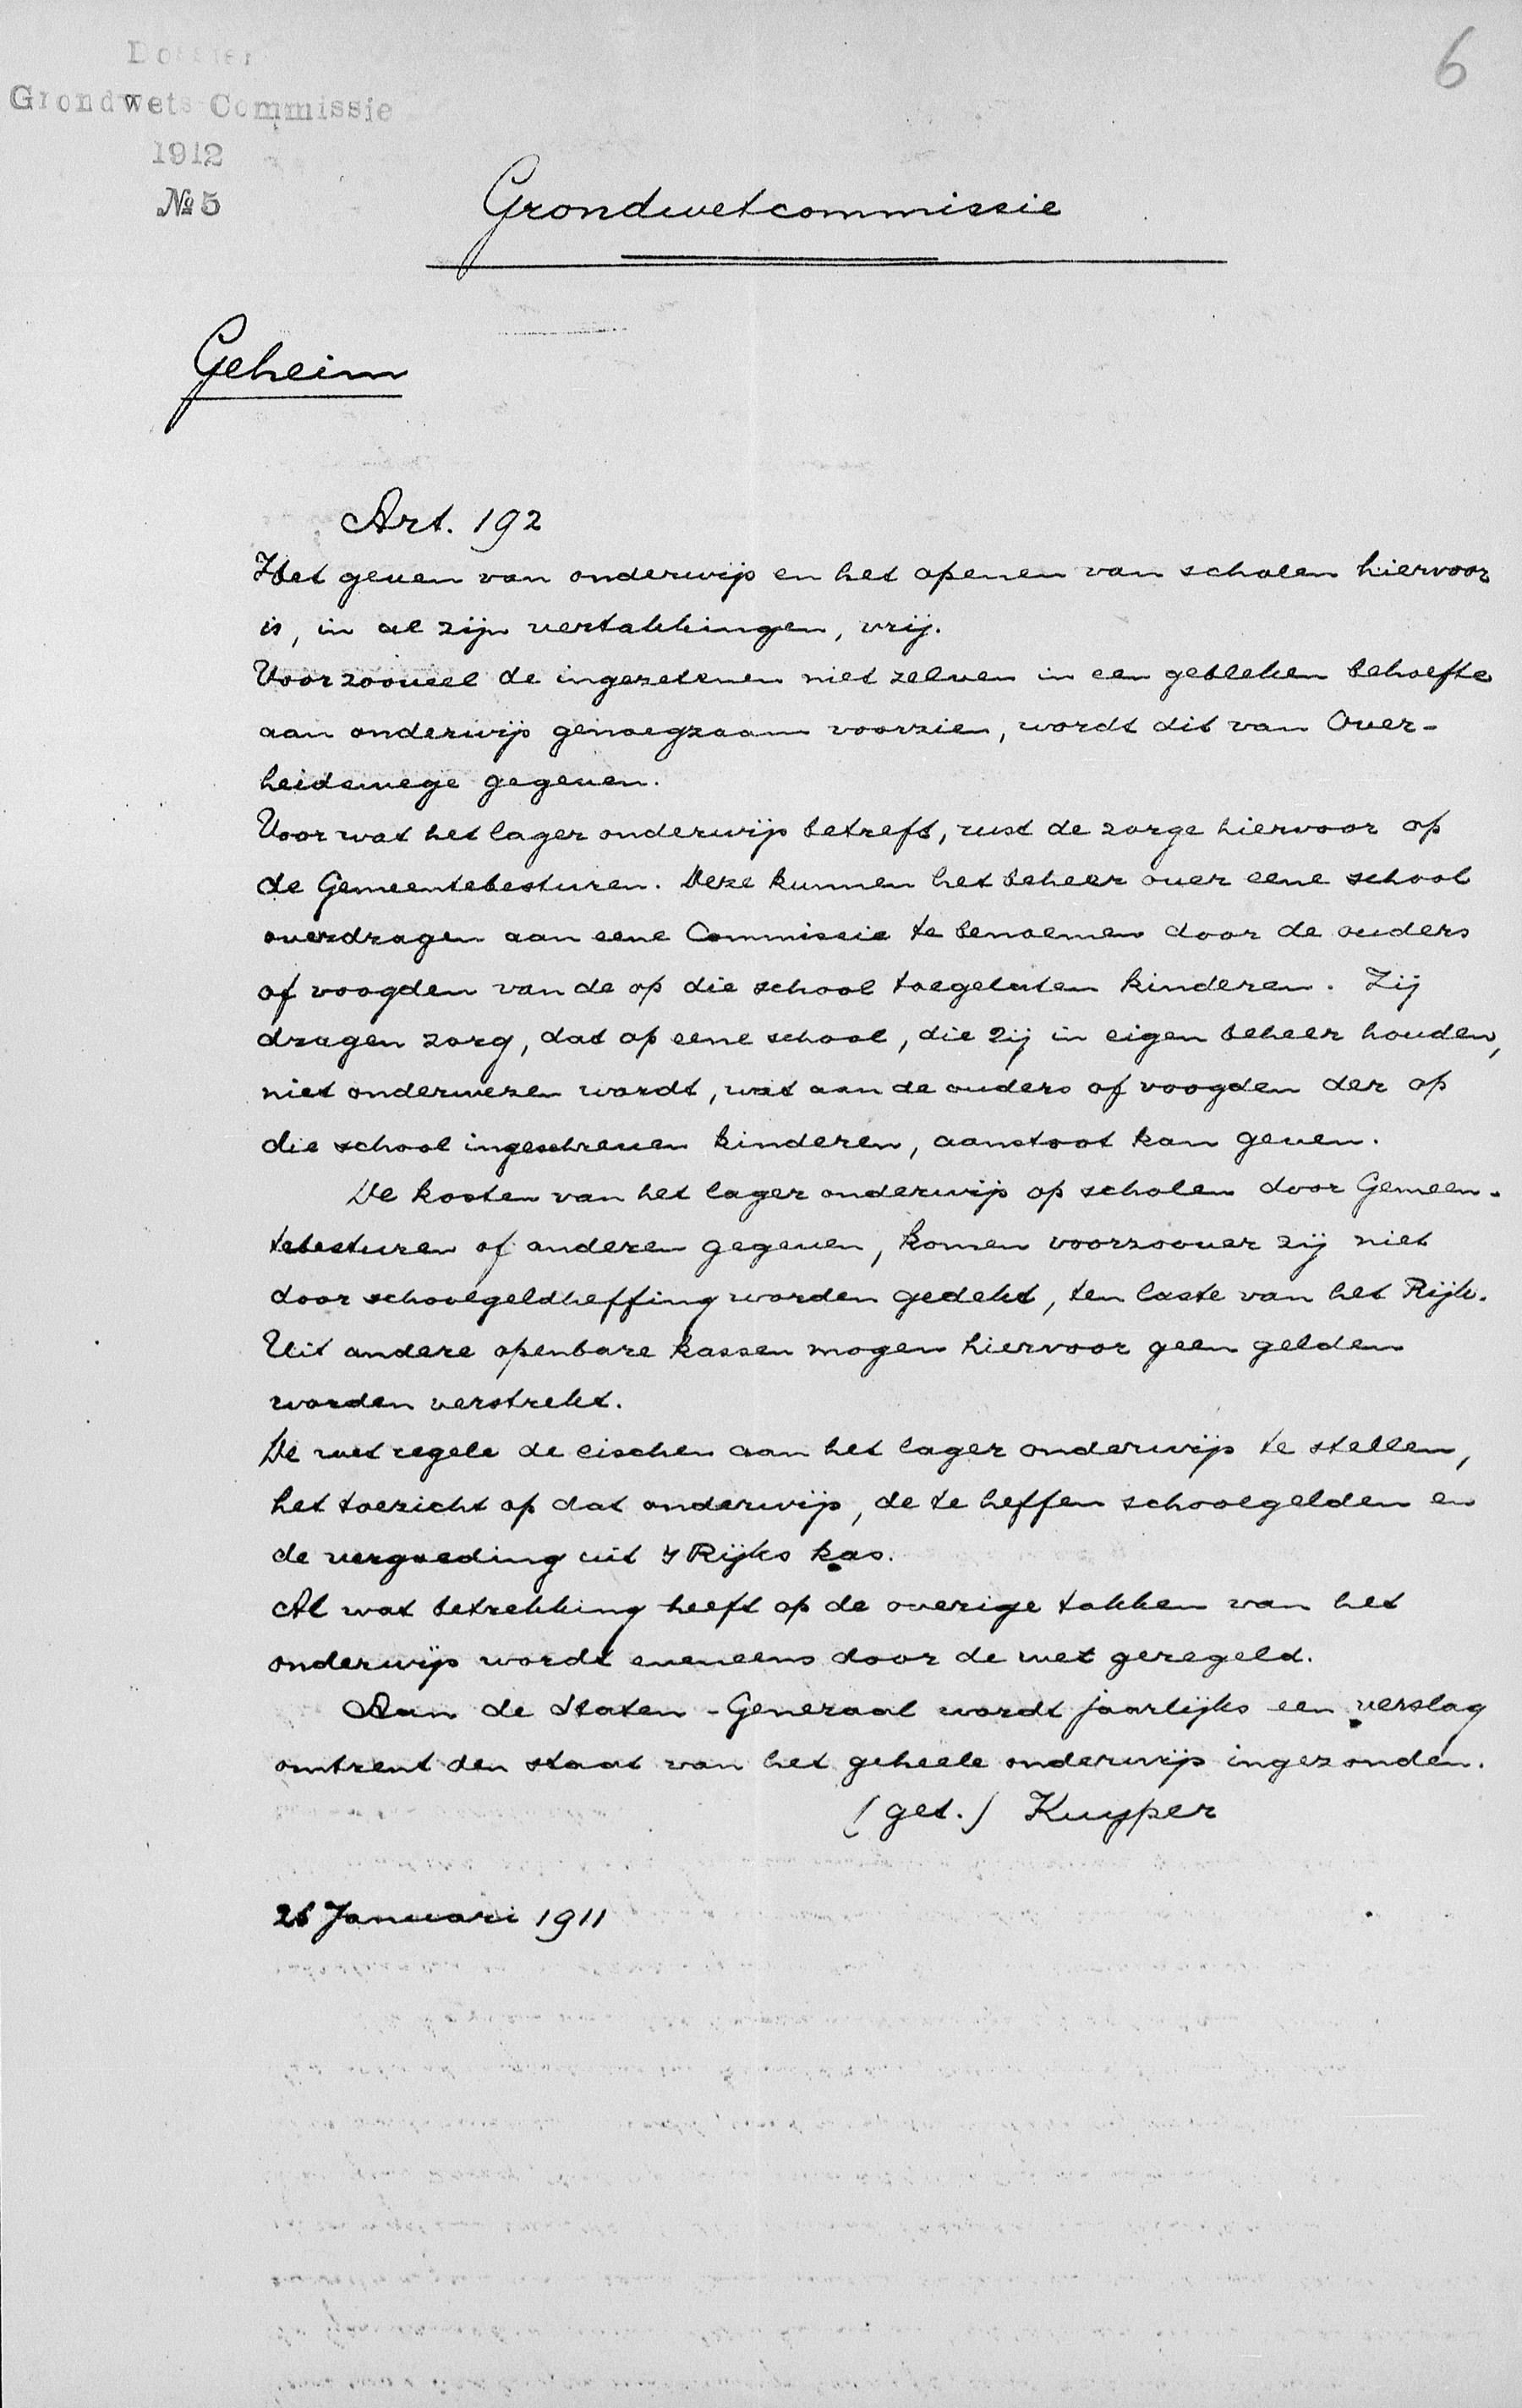 Dossier
Grondwets-Commissie
1912
№ 5
6
Grondwetcommissie
Geheim
Art. 192
Het geven van onderwijs en het openen van scholen hiervoor
is, in al zijn vertakkingen, vrij.
Voor zooveel de ingezetenen niet zelven in een gebleken behoefte
aan onderwijs genoegzaam voorzien, wordt dit van Over-
heidswege gegeven.
Voor wat het lager onderwijs betreft, rust de zorge hiervoor op
de Gemeentebesturen. Deze kunnen het beheer over eene school
overdragen aan eene Commissie te benoemen door de ouders
of voogden van de op die school toegelaten kinderen. Zij
dragen zorg, dat op eene school, die zij in eigen beheer houden,
niet onderwezen wordt, wat aan de ouders of voogden der op
die school ingeschreven kinderen, aanstoot kan geven.
De kosten van het lager onderwijs op scholen door Gemeen-
tebesturen of anderen gegeven, komen voorzoover zij niet
door schoolgeldheffing worden gedekt, ten laste van het Rijk.
Uit andere openbare kassen mogen hiervoor geen gelden
worden verstrekt.
De wet regele de eischen aan het lager onderwijs te stellen,
het toezicht op dat onderwijs, de te heffen schoolgelden en
de vergoeding uit 's Rijks kas.
Al wat betrekking heeft op de overige takken van het
onderwijs wordt eveneens door de wet geregeld.
Aan de Staten-Generaal wordt jaarlijks een verslag
omtrent den staat van het geheele onderwijs ingezonden.
(get.) Kuyper
26 Januari 1911